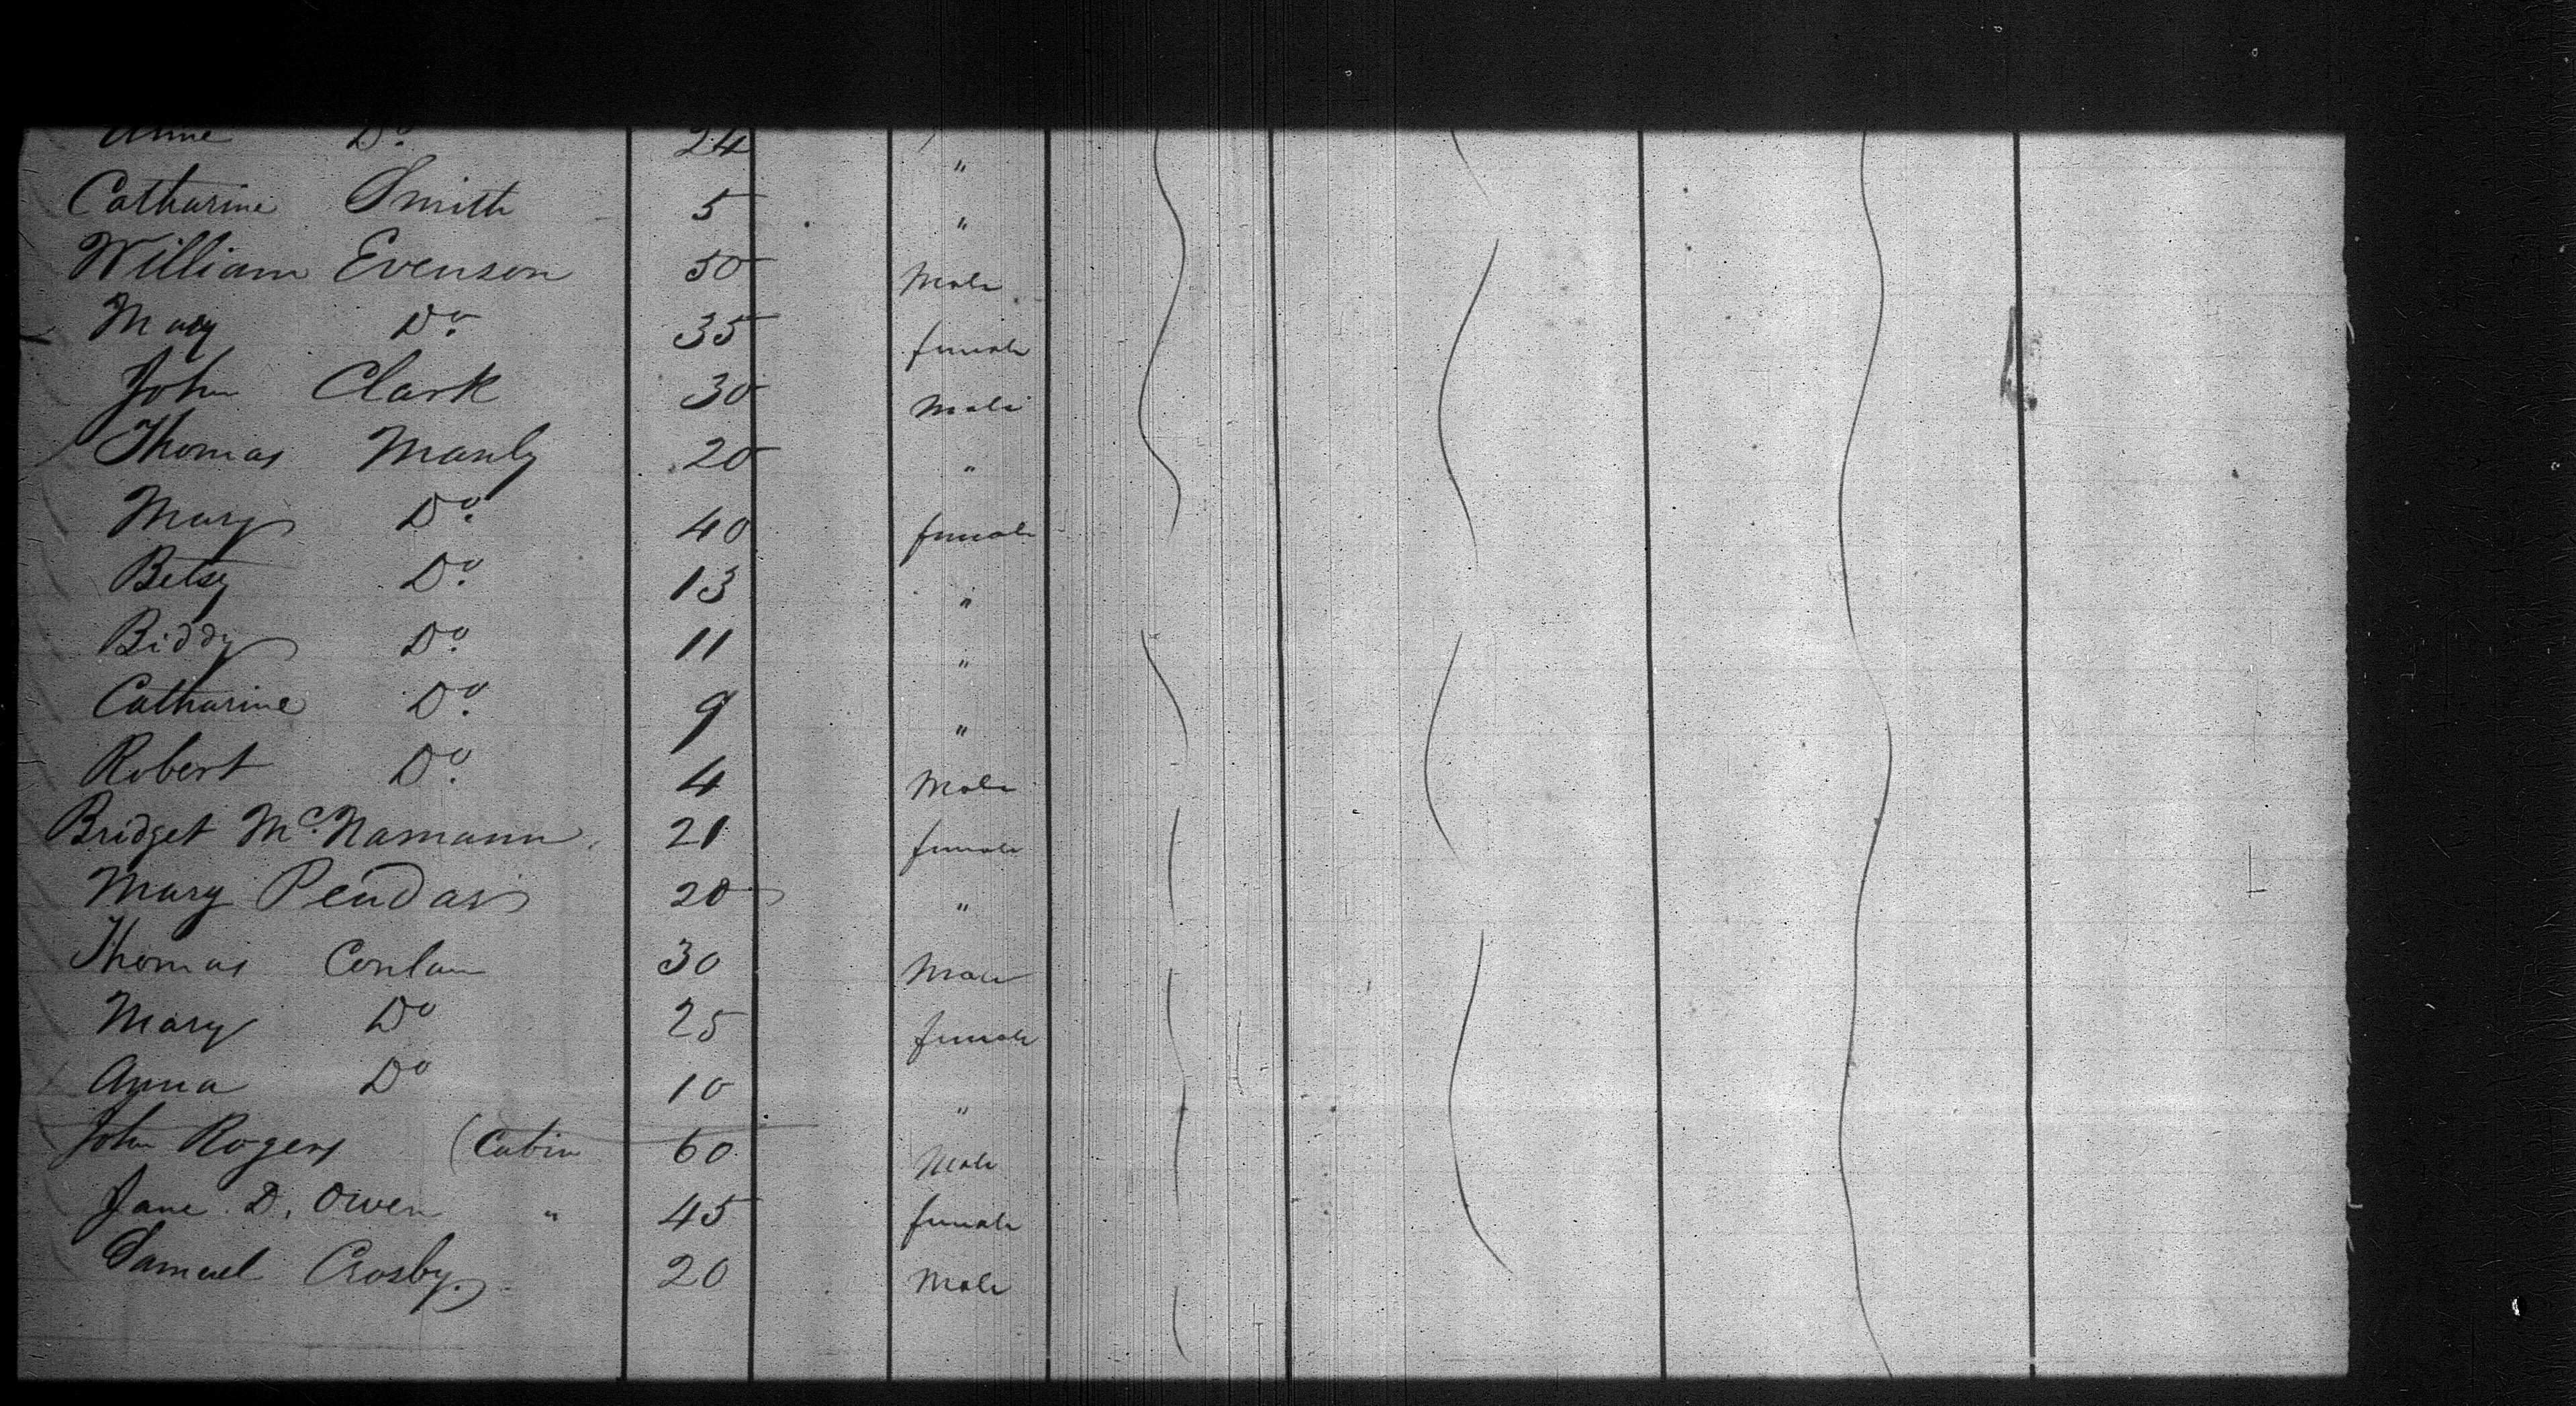 Anne Do. 24
Catharine Smith 5 "
William Evenson 50 Male
Mary Do. 35 female
John Clark 30 Male
Thomas Manly 20 "
Mary Do. 40 female
Betsy Do. 13 "
Biddy Do. 11 "
Catharine Do. 9 "
Robert Do. 4 Male
Bridget Mc. Namann 21 female
Mary 20 "
Thomas Conlan 30 Male
Mary Do 25 female
Anna Do 10 "
John Rogers (Cabin 60 Male
Jane D. Owen " 45 female
Samuel Crosby. 20 Male